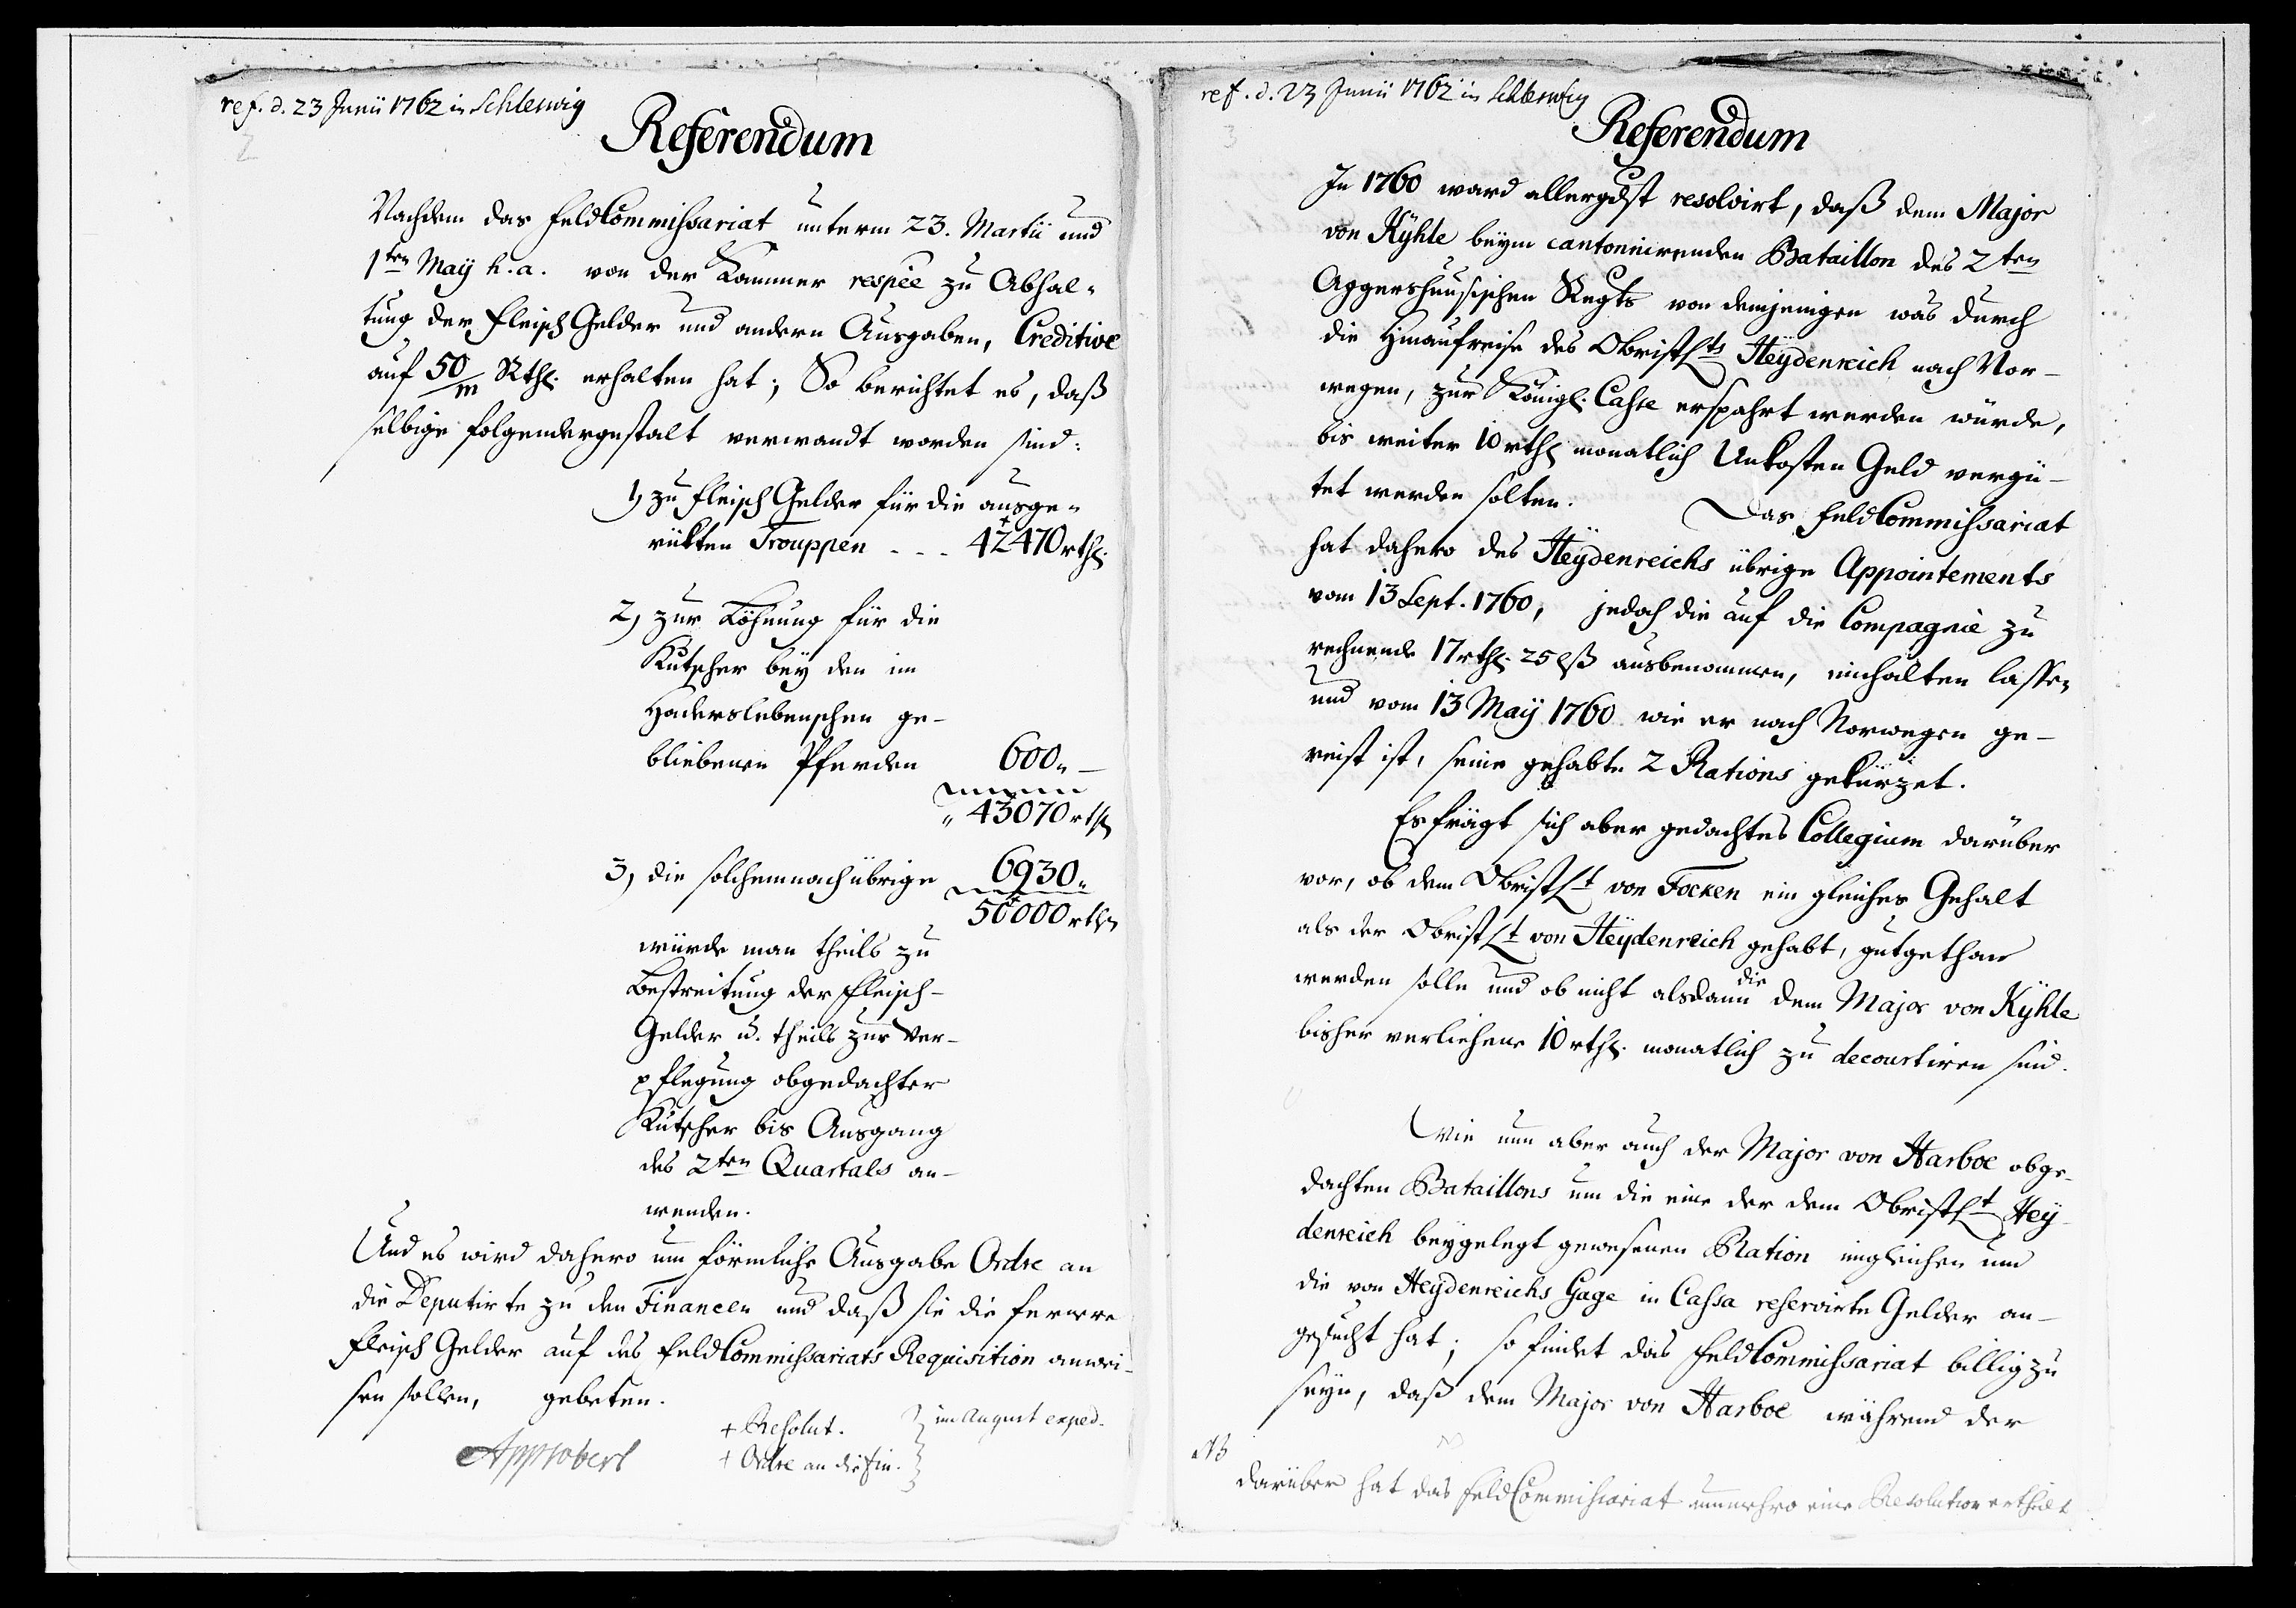 ref. d. 23 Junii 1762 in Schleswig
2
Referendum
Nachdem das FeldCommissariat unterm 23. Martii und
1ten Maÿ h. a. von der Kammer respée zu Abhal-
tung der Fleisch Gelder und andern Ausgaben, Creditive
auf 50/m Rthl. erhalten hat; So berichtet es, daß
selbige folgendergestalt verwandt worden sind:
1, zu Fleisch Gelder für die ausge-
rükten Trouppen - - - 42470 rthl.
2, zur Löhnung für die
Kutscher beÿ den im
Haderslebenschen ge-
bliebenen Pferden 600 " —
" 43070 rthl
3, die solchemnach übrige 6930 "
50000 rthl
würde man theils zu
Bestreitung der Fleisch-
Gelder u. theils zur Ver-
pflegung obgedachter
Kutscher bis Ausgang
des 2ten Quartals an-
wenden.
Und es wird dahero um förmliche Ausgabe Ordre an
die Deputirte zu den Financen und daß sie die fernere
Fleisch Gelder auf des FeldCommissariats Requisition anwei-
sen sollen, gebeten.
Approbert
+ Resolut.
+ Ordre an die Fin.
im August exped.
ref. d. 23 Junii 1762 in Schleswig
3
Referendum
In 1760 ward allergdst resolvirt, daß dem Major
von Kÿhle beÿm cantonnirenden Bataillon des 2ten
Aggershuusischen Regts von demjenigen was durch
die Hinaufreise des ObristLts Heÿdenreich nach Nor-
wegen, zur Königl. Casse erspahrt werden würde,
bis weiter 10 rthl monatlich Unkosten Geld vergü-
tet werden solten. Das FeldCommissariat
hat dahero des Heÿdenreichs übrige Appointements
vom 13 Sept. 1760, jedoch die auf die Compagnie zu
rechnende 17 rthl. 25 lß ausbenommen, einhalten lassen
und vom 13 Maÿ 1760 wie er nach Norwegen ge-
reist ist, seine gehabte 2 Rations gekürzet.
Es frägt sich aber gedachtes Collegium darüber
vor, ob dem ObristLt von Focken ein gleiches Gehalt
als der ObristLt von Heÿdenreich gehabt, gutgethan
werden solle und ob nicht alsdann die dem Major von Kÿhle
bisher verliehene 10 rthl. monatlich zu decourtiren sind.
Wie nun aber auch der Major von Harboe obge-
dachten Bataillons um die eine der dem ObristLt Heÿ-
denreich beygelegt gewesenen Ration imgleichen um
die von Heydenreichs Gage in Cassa reservirte Gelder an-
gesucht hat; so findet das FeldCommissariat billig zu
seÿn, daß dem Major von Harboe während der
NB
darüber hat das FeldCommissariat nunmehro eine Resolution ertheilt